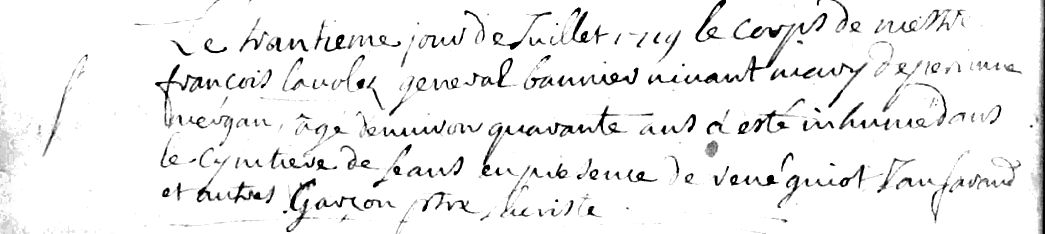 Le trantieme jour de Juillet 1719 le corps de
françois general bannier vivant mary de perinne
âgé denuiron quarante ans a esté inhumé dans
le Cymtiere de ceans en presence de rené guiot Jan
et autres Garçon ptre sacriste